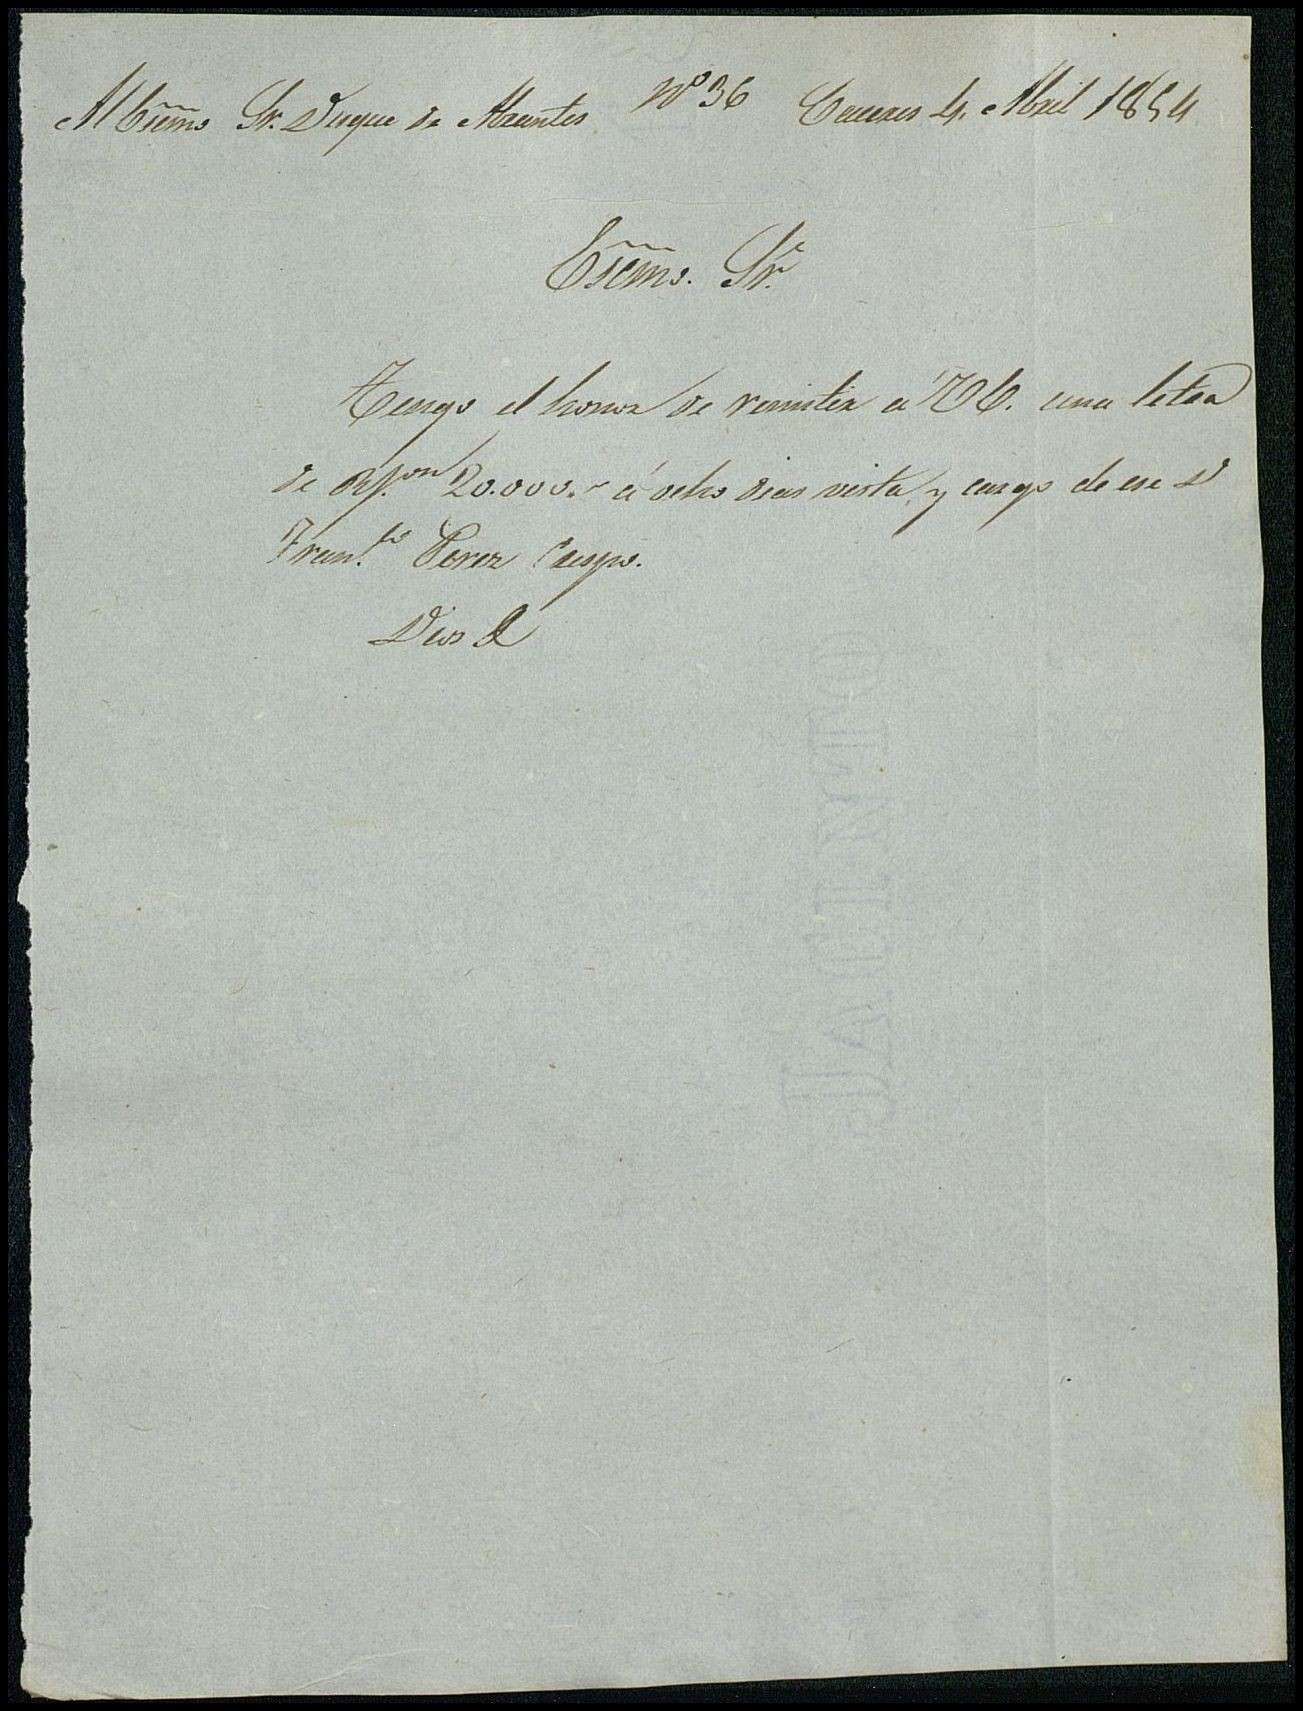 Al Escmo Sr. Duque de Abrantes Nº 36 Caceres 4. Abril 1854
Escmo. Sr.
Tengo el honor de remitir a V.E. una letra
de Rs von 20.000.- á ocho dias vista, y cargo de ese D
Franco Perez Crespo.
Dios &